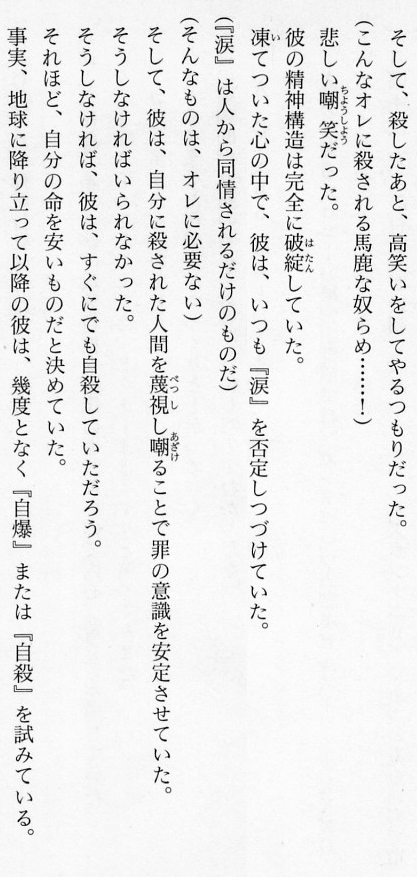 そして、殺したあと、高笑いをしてやるつもりだった。
(こんなオレに殺される馬鹿な奴らめ……！)
悲しい嘲笑だった。
彼の精神構造は完全に破綻していた。
凍てついた心の中で、彼は、いつも『涙』を否定しつづけていた。
(『涙』は人から同情されるだけのものだ)
(そんなものは、オレに必要ない)
そして、彼は、自分に殺された人間を蔑視し嘲ることで罪の意識を安定させていた。
そうしなければいられなかった。
そうしなければ、彼は、すぐにでも自殺していただろう。
それほど、自分の命を安いものだと決めていた。
事実、地球に降り立って以降の彼は、幾度となく『自爆』または『自殺』を試みている。